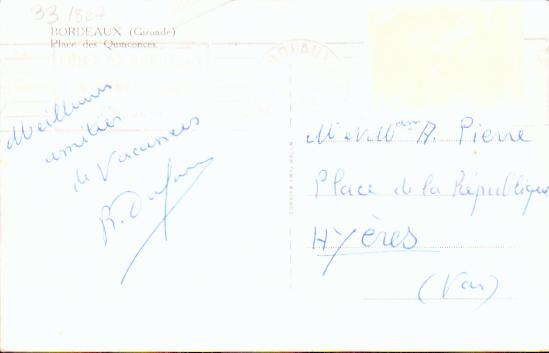 33 1867
BORDEAUX (Gironde)
Place des Quinconces
Meilleures
amitiés
de Vacances
Mr et Mme A. Pierre
Place de la République
HYÈRES
(Var)